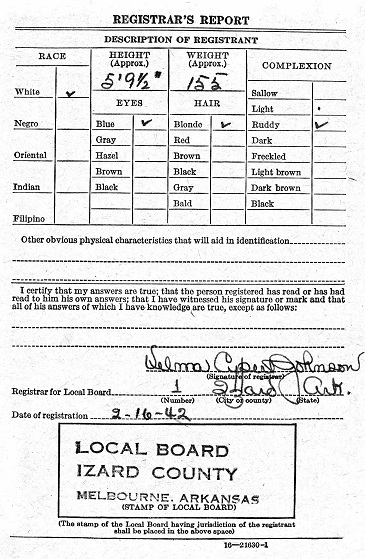 REGISTRAR'S REPORT
DESCRIPTION OF REGISTRANT
RACE
HEIGHT (Approx.)
WEIGHT (Approx.)
COMPLEXION
5' 9½"
155
White ✓
EYES
HAIR
Sallow
Light
Negro
Blue ✓
Blonde ✓
Ruddy ✓
Gray
Red
Dark
Oriental
Hazel
Brown
Freckled
Brown
Black
Light brown
Indian
Black
Gray
Dark brown
Bald
Black
Filipino
Other obvious physical characteristics that will aid in identification
I certify that my answers are true; that the person registered has read or has had
read to him his own answers; that I have witnessed his signature or mark and that
all of his answers of which I have knowledge are true, except as follows:
Velma Cypert Johnson
(Signature of registrar)
Registrar for Local Board 1 Izard Ark.
(Number) (City or county) (State)
Date of registration 2-16-42
LOCAL BOARD
IZARD COUNTY
MELBOURNE, ARKANSAS
(STAMP OF LOCAL BOARD)
(The stamp of the Local Board having jurisdiction of the registrant
shall be placed in the above space)
16—21630-1